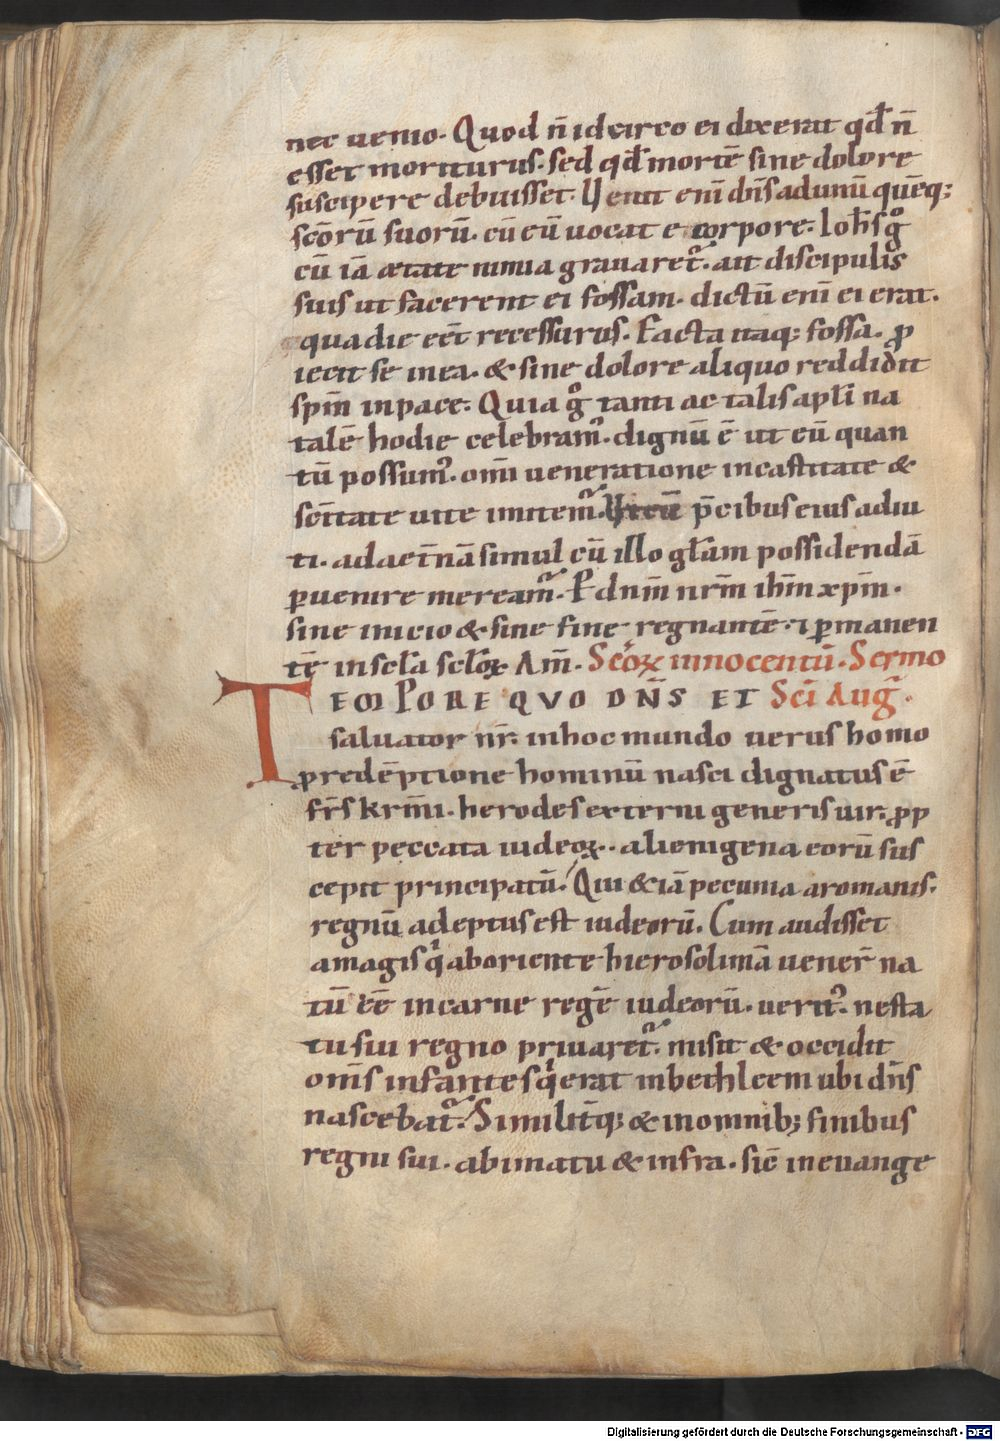 nec uenio. Quod n̄ idcirco ei dixerat qd̄ n̄
esset moriturus. sed qd̄ mortē sine dolore
suscipere debuisset. Uenit eni̅ dn̄s ad unū quēq;
sc̄orū suorū. cū eū uocat e corpore. Ioh̄s gͦ
cū iā ætate nimia grauaret᷑. ait discipulis
suis ut facerent ei fossam. dictū eni̅ ei erat.
qua die eēt recessurus. Facta itaq; fossa. ꝓ
iecit se in ea. & sine dolore aliquo reddidit
spm̄ in pace. Quia gͦ tanti ac talis apl̄i na
talē hodie celebram᷒. dignū ē ut eū quan
tū possum᷒. omi̅ ueneratione in castitate &
sc̄itate uite imitem᷑. p̄cibus eius adiu
ti. ad aet̄nā simul cū illo gl̄am possidendā
ꝑuenire mereamᷣ. P dnm̄ nrm̄ ihm̄ xpm̄.
sine inicio & sine fine regnantē. ⁊ ꝑmanen
tē in scl̄a scl̄oꝝ Am̄. Sc̄oꝝ innocentū. Sermo
TEMPORE QVO DN̄S ET Sc̄i Aug̅.
saluator nr̄. in hoc mundo uerus homo
ꝓ redēptione hominū nasci dignatus ē
fr̄s krm̄i. herodes externi generis uir. ꝓp
ter peccata iudeoꝝ. alienigena eorū sus
cepit principatū. Qui & iā pecunia a romanis.
regnū adeptus est iudeorū. Cum audisset
a magis qͥ ab oriente hierosolimā uener̄ na
tū eē in carne regē iudeorū. uerit᷒. ne sta
tu sui regno priuaret᷑. misit & occidit
om̄s infantes qͥ erāt in bethleem ubi dn̄s
nascebat᷑. Similit̄q; & in omnib; finibus
regni sui. a bimatu & infra. sic̄ in euange
Digitalisierung gefördert durch die Deutsche Forschungsgemeinschaft - DFG